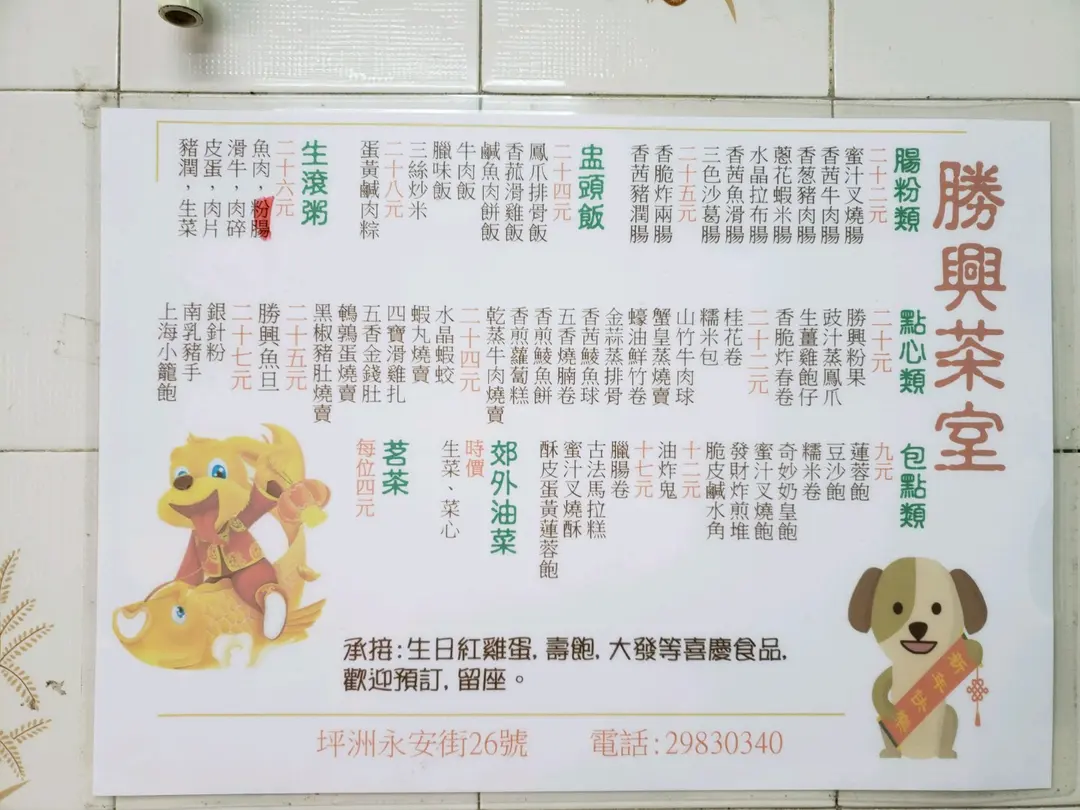 勝興茶室
腸粉類
二十二元
蜜汁叉燒腸
香茜牛肉腸
香葱豬肉腸
蔥花蝦米腸
水晶拉布腸
香茜魚滑腸
三色沙葛腸
二十五元
香脆炸兩腸
香茜豬潤腸
盅頭飯
二十四元
鳳爪排骨飯
香菰滑雞飯
鹹魚肉餅飯
牛肉飯
臘味飯
三絲炒米
二十八元
蛋黃鹹肉粽
生滾粥
二十六元
魚肉，粉腸
滑牛，肉碎
皮蛋，肉片
豬潤，生菜
點心類
二十元
勝興粉果
豉汁蒸鳳爪
生薑雞飽仔
香脆炸春卷
二十二元
桂花卷
糯米包
山竹牛肉球
蟹皇蒸燒賣
蠔油鮮竹卷
金蒜蒸排骨
香茜鯪魚球
五香燒腩卷
香煎鯪魚餅
香煎蘿蔔糕
乾蒸牛肉燒賣
二十四元
水晶蝦蛟
蝦丸燒賣
四寶滑雞扎
五香金錢肚
鵪鶉蛋燒賣
黑椒豬肚燒賣
二十五元
勝興魚旦
二十七元
銀針粉
南乳豬手
上海小籠飽
包點類
九元
蓮蓉飽
豆沙飽
糯米卷
奇妙奶皇飽
蜜汁叉燒飽
發財炸煎堆
脆皮鹹水角
十二元
油炸鬼
十七元
臘腸卷
古法馬拉糕
蜜汁叉燒酥
酥皮蛋黃蓮蓉飽
郊外油菜
時價
生菜、菜心
茗茶
每位四元
承接:生日紅雞蛋, 壽飽, 大發等喜慶食品,
歡迎預訂, 留座。
新年快樂
坪洲永安街26號 電話:29830340